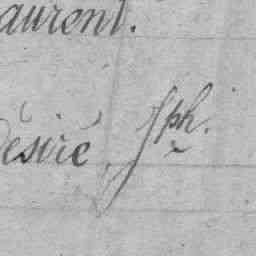 aurent.
Désiré Jph.